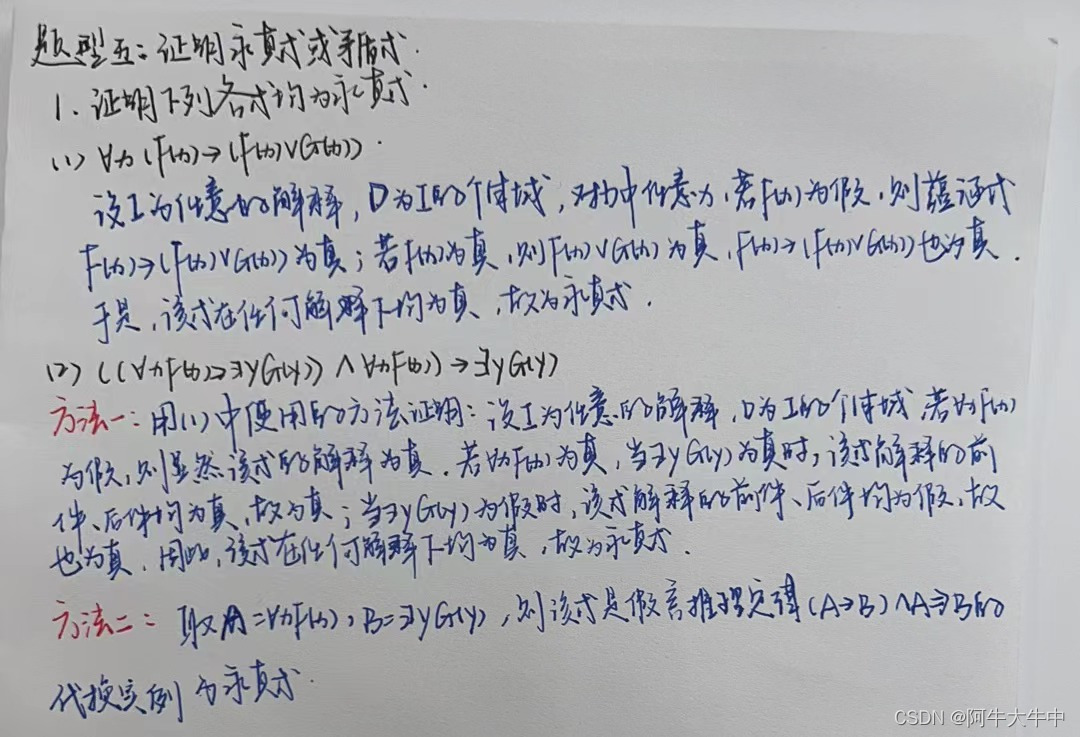 题型五：证明永真式或矛盾式.
1. 证明下列各式均为永真式.
(1) ∀x(F(x)→(F(x)∨G(x))).
设I为任意的解释，D为I的个体域，对D中任意x，若F(x)为假，则蕴涵式
F(x)→(F(x)∨G(x))为真；若F(x)为真，则F(x)∨G(x)为真，F(x)→(F(x)∨G(x))也为真.
于是，该式在任何解释下均为真，故为永真式.
(2) ((∀xF(x)→∃yG(y))∧∀xF(x))→∃yG(y)
方法一：用(1)中使用的方法证明：设I为任意的解释，D为I的个体域，若∀xF(x)
为假，则显然该式的解释为真. 若∀xF(x)为真，当∃yG(y)为真时，该式解释的前
件、后件均为真，故为真；当∃yG(y)为假时，该式解释的前件、后件均为假，故
也为真. 因此，该式在任何解释下均为真，故为永真式.
方法二：取A=∀xF(x)，B=∃yG(y)，则该式是假言推理定律(A→B)∧A⇒B的
代换实例 为永真式.
CSDN @阿牛大牛中